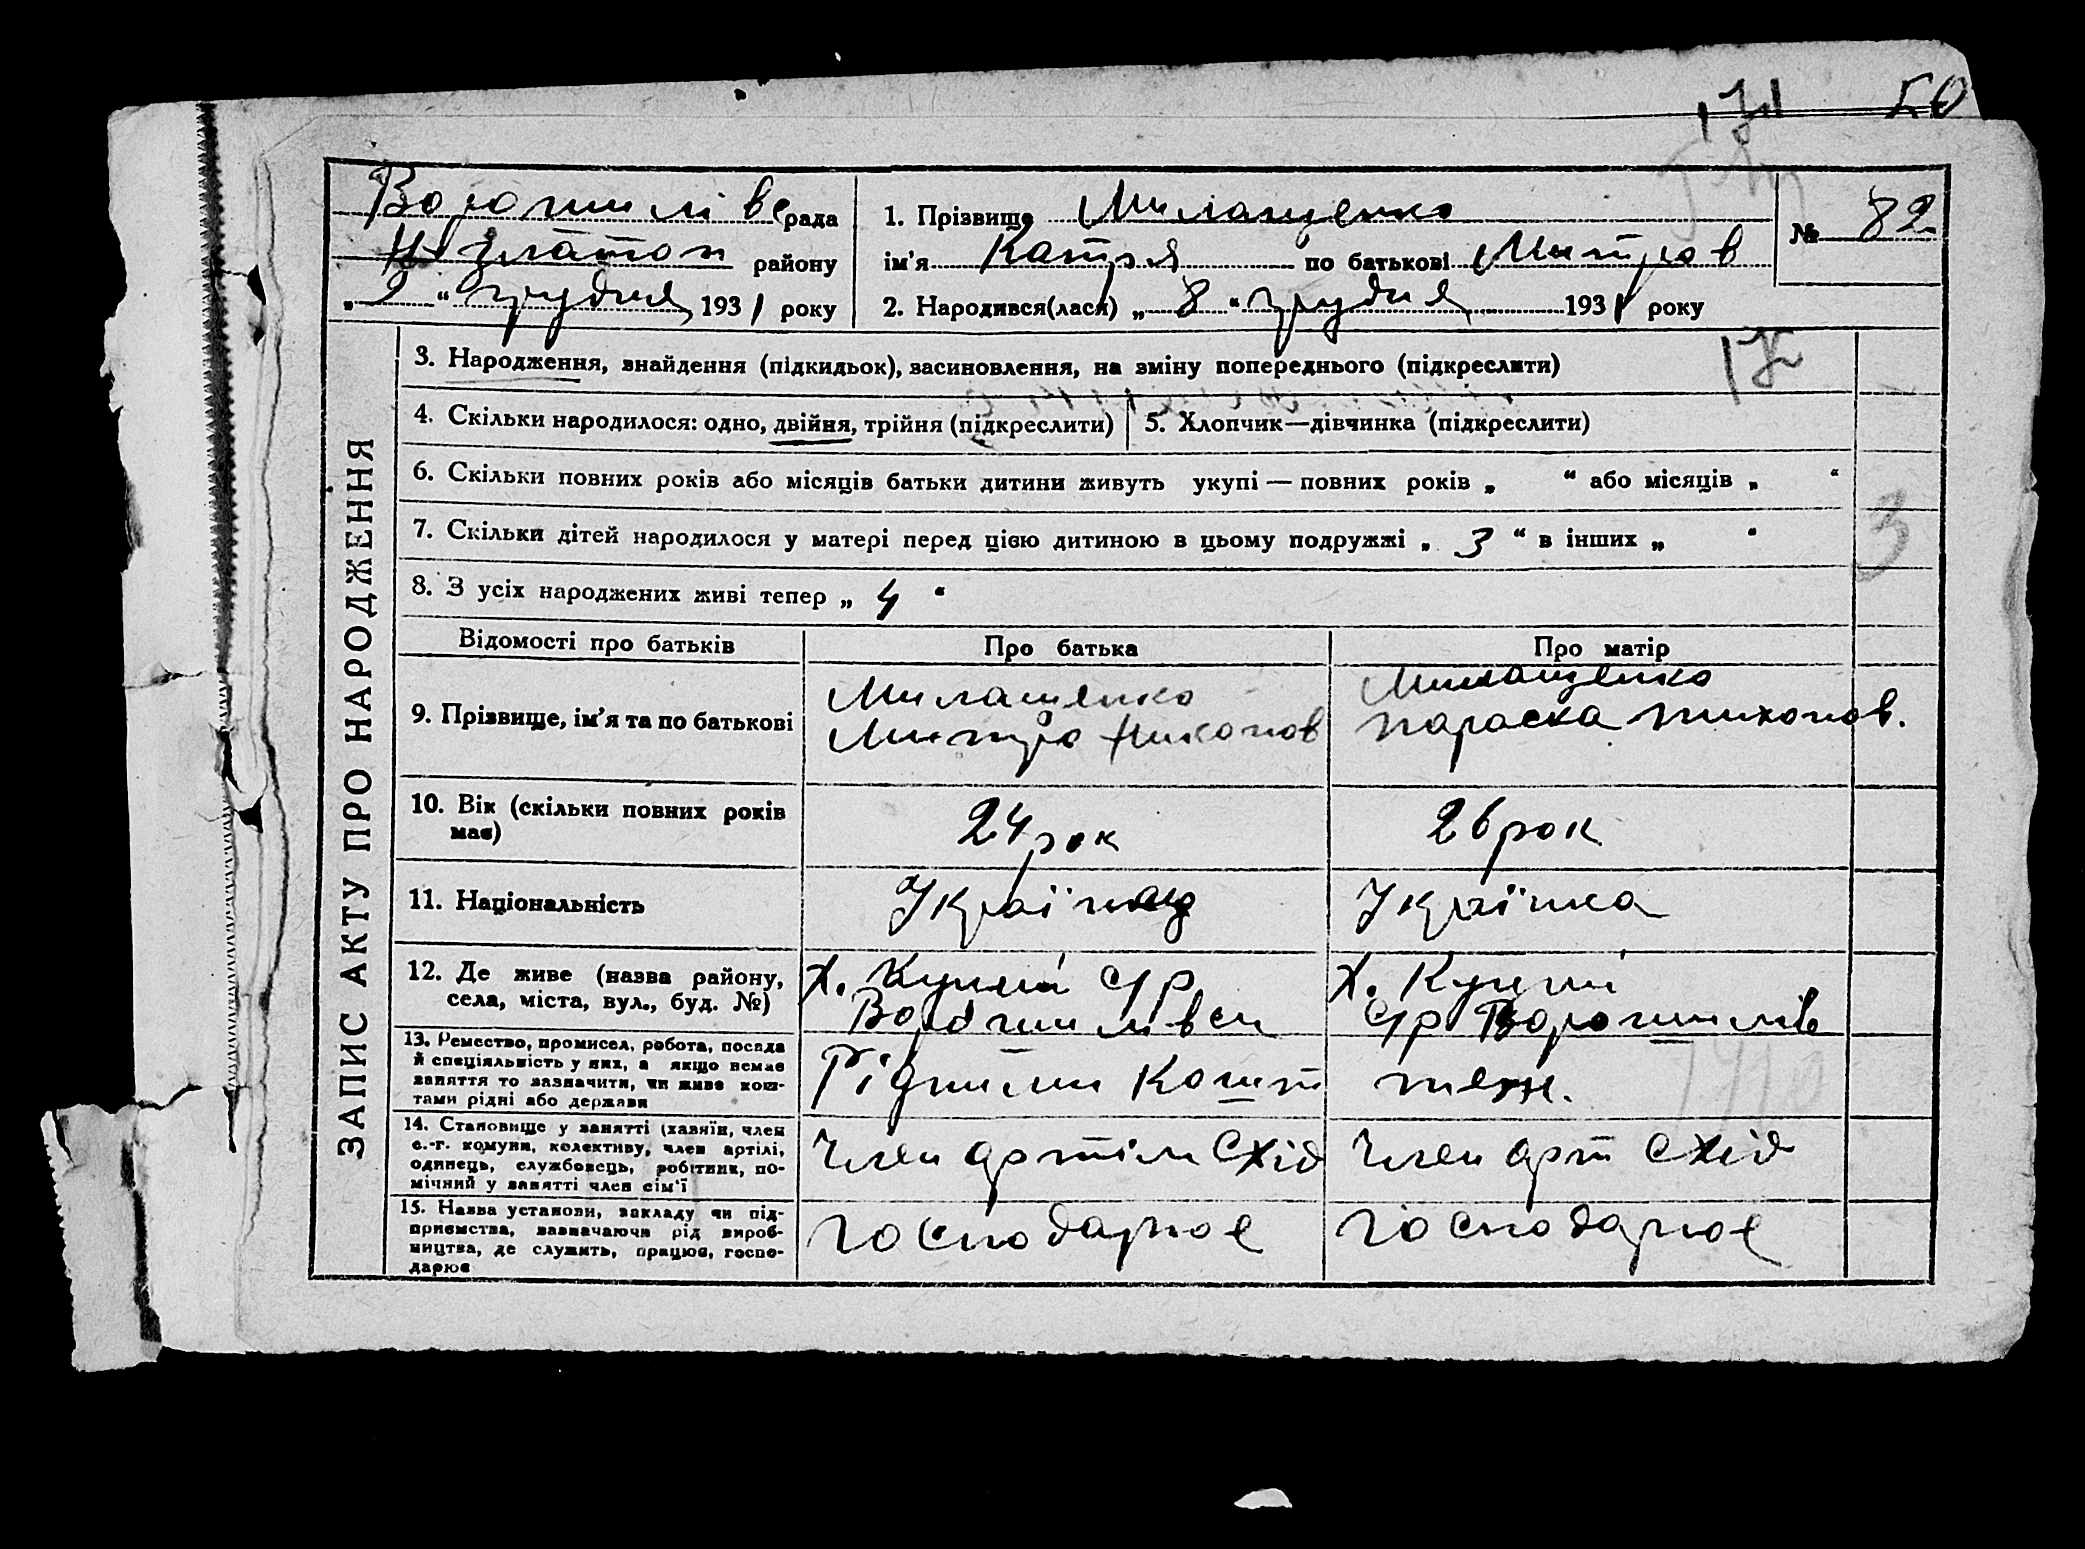 50
Ворошилівс рада
Н-Златоп району
„ 9 “ грудня 1931 року
1. Прізвище Милащенко
ім'я Катря по батькові Митров
2. Народився(лася) „ 8 “ грудня 1931 року
№ 82
ЗАПИС АКТУ ПРО НАРОДЖЕННЯ
3. Народження, знайдення (підкидьок), засиновлення, на зміну попереднього (підкреслити)
4. Скільки народилося: одно, двійня, трійня (підкреслити)
5. Хлопчик—дівчинка (підкреслити)
6. Скільки повних років або місяців батьки дитини живуть укупі — повних років „ “ або місяців „ “
7. Скільки дітей народилося у матері перед цією дитиною в цьому подружжі „ 3 “ в інших „ “
3
8. З усіх народжених живі тепер „ 4 “
Відомості про батьків
Про батька
Про матір
9. Прізвище, ім'я та по батькові
Милащенко
Митро Никонов
Милащенко
Параска Тихонов.
10. Вік (скільки повних років
має)
24 рок
26 рок
11. Національність
Українец
Українка
12. Де живе (назва району,
села, міста, вул., буд. №)
Х. с/р
Ворошилівси
Х.
с/р Ворошилів
13. Ремество, промисел, робота, посада
й спеціяльність у них, а якщо немає
заняття то зазначити, чи живе кош-
тами рідні або держави
Рідними кошт
теж.
14. Становище у занятті (хазяїн, член
с.-г. комуни, колективу, член артілі,
одинець, службовець, робітник, по-
мічний у занятті член сім'ї
Член артіли Схід
Член арт Схід
15. Назва установи, закладу чи під-
приємства, зазначаючи рід вироб-
ництва, де служить, працює, госпо-
дарює
господарює
господарює